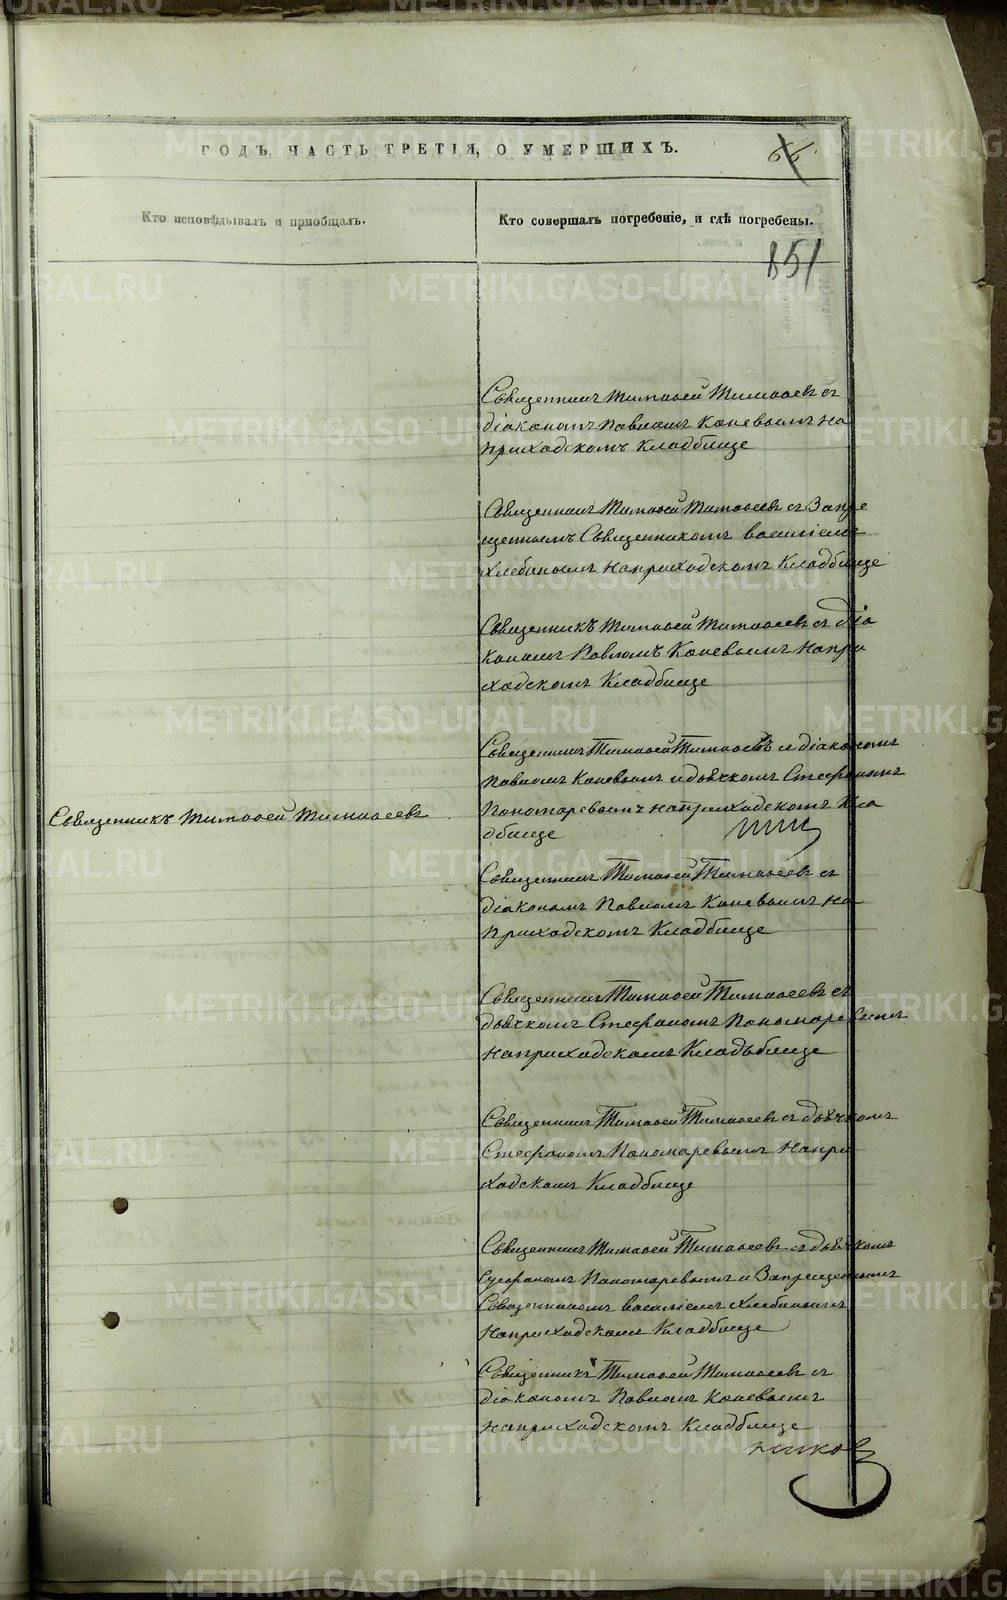 ГОДЪ, ЧАСТЬ ТРЕТІЯ, О УМЕРШИХЪ.
Кто исповѣдывалъ и пріобщалъ.
Кто совершалъ погребеніе, и гдѣ погребены.
851
Священникъ Тимофей Тимофеевъ съ
діакономъ Павломъ Каневымъ на
приходскомъ Кладбище
Священникъ Тимофей Тимофеевъ съ Запре
щеннымъ Священникомъ Василіемъ
Хлебинымъ на приходскомъ Кладбище
Священникъ Тимофей Тимофеевъ съ діа
кономъ Павломъ Каневымъ на при
ходскомъ Кладбище
Священникъ Тимофей Тимофеевъ и діакономъ
Павломъ Каневымъ и дьячкомъ Стефаномъ
Священникъ Тимофей Тимофеевъ
Пономаревымъ на приходскомъ Кла
дбище
Священникъ Тимофей Тимофеевъ съ
діакономъ Павломъ Каневымъ на
приходскомъ Кладбище
Священникъ Тимофей Тимофеевъ съ
дьячкомъ Стефаномъ Пономаревымъ
на приходскомъ Кладьбище
Священникъ Тимофей Тимофеевъ съ дьячкомъ
Стефаномъ Пономаревымъ на при
ходскомъ Кладбище
Священникъ Тимофей Тимофеевъ съ дьячкомъ
Стефаномъ Пономаревымъ и Запрещеннымъ
Священникомъ Василіемъ Хлебинымъ
на приходскомъ Кладбище
Священникъ Тимофей Тимофеевъ съ
діакономъ Павломъ Каневымъ
на приходскомъ Кладбище
METRIKI.GASO-URAL.RU